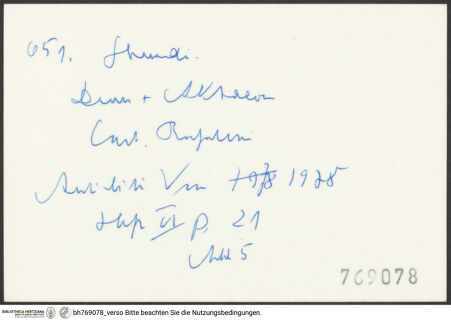 651.
Dian + Aktaeon
Cast.
Antichità Viva 1978 1978
Heft VI p. 21
Abb 5
769078
BIBLIOTHECA HERTZIANA
bh769078_verso Bitte beachten Sie die Nutzungsbedingungen.